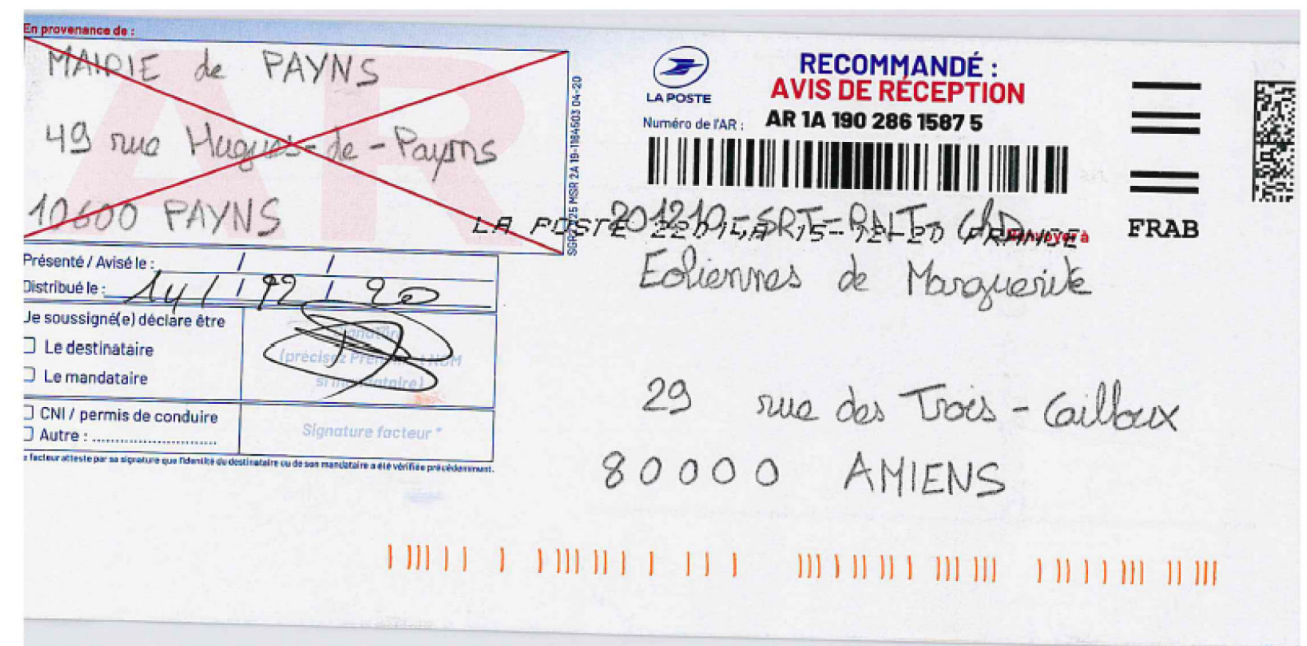 En provenance de :
MAIRIE de PAYNS
49 rue Hugues-de-Payns
10600 PAYNS
AR
SGR2 V25 MSR 2A 19-1184603 04-20
Présenté / Avisé le : / /
Distribué le : 14 / 12 / 20
Je soussigné(e) déclare être
Le destinataire
Le mandataire
CNI / permis de conduire
Autre : ..............................
Signature
(précisez Prénom et NOM
si mandataire)
Signature facteur *
facteur atteste par sa signature que l'identité du destinataire ou de son mandataire a été vérifiée précédemment.
LA POSTE
RECOMMANDÉ :
AVIS DE RÉCEPTION
Numéro de l'AR : AR 1A 190 286 1587 5
FRAB
LA POSTE
FRANCE
Renvoyer à
201210-SRT-RNT-
Eoliennes de Marguerite
29 rue des Trois-Cailloux
80000 AMIENS